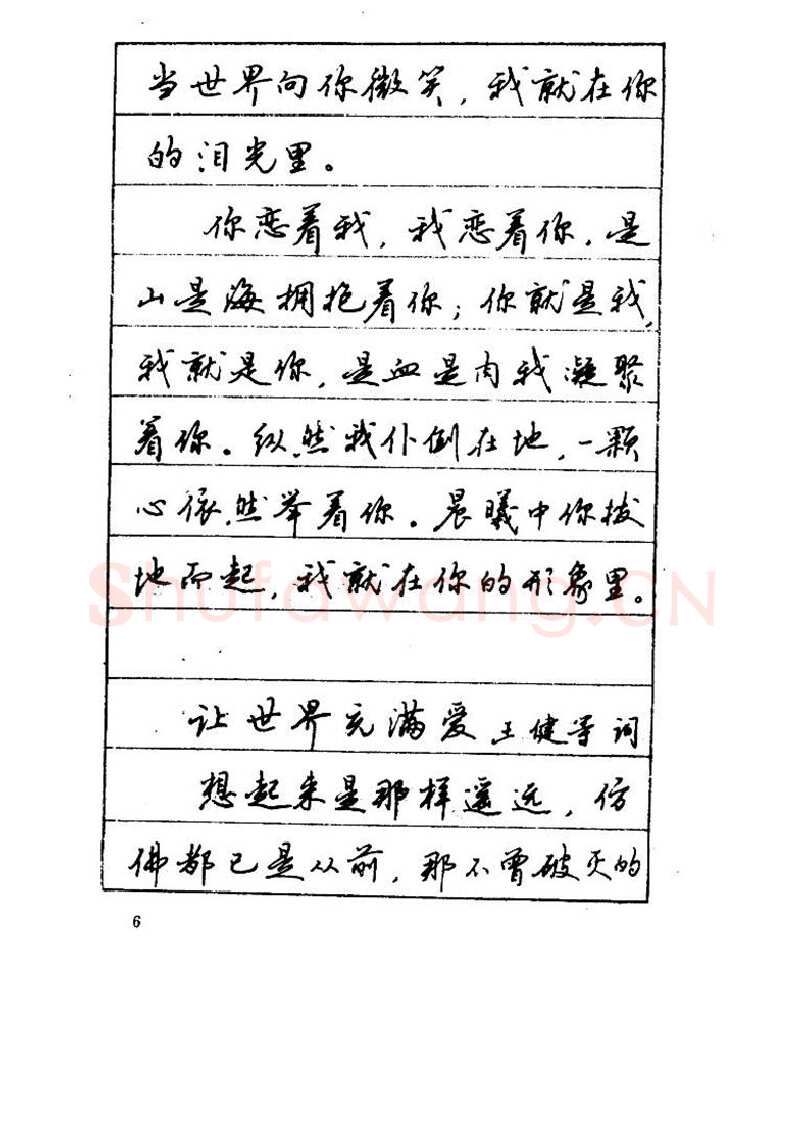 当世界向你微笑，我就在你
的泪光里。
你恋着我，我恋着你，是
山是海拥抱着你；你就是我，
我就是你，是血是肉我凝聚
着你。纵然我仆倒在地，一颗
心依然举着你。晨曦中你拔
地而起，我就在你的形象里。
Shufawang.CN
让世界充满爱 王健等词
想起来是那样遥远，仿
佛都已是从前，那不曾破灭的
6